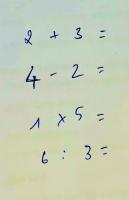 2 + 3 =
4 - 2 =
1 x 5 =
6 : 3 =